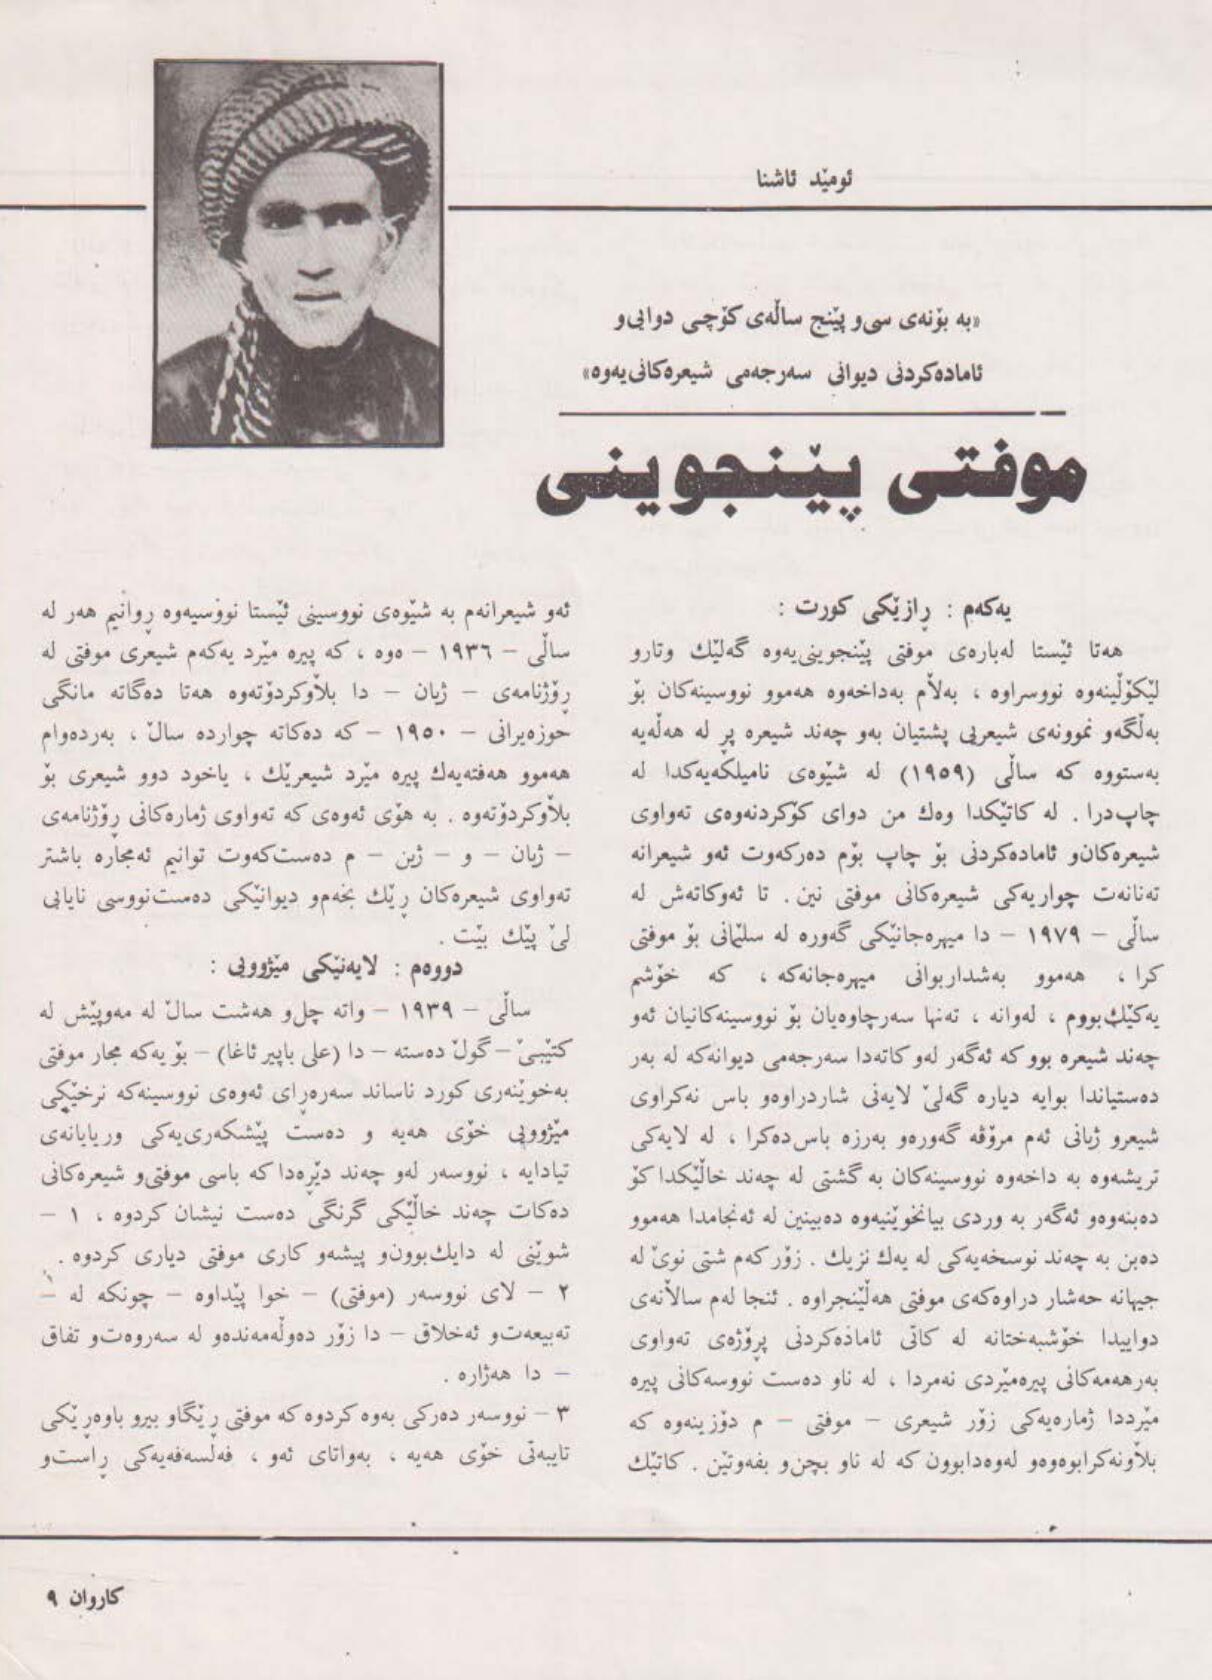 ئومێد ئاشنا
«بە بۆنەی سی‌و پێنج ساڵەی کۆچی دوایی‌و
ئامادەکردنی دیوانی سەرجەمی شیعرەکانی‌یەوە»
موفتی پێنجوینی
یەکەم : ڕازێکی کورت :
هەتا ئێستا لەبارەی موفتی پێنجوینی‌یەوە گەلێك وتارو
لێکۆڵینەوە نووسراوە ، بەڵام بەداخەوە هەموو نووسینەکان بۆ
بەڵگەو نموونەی شیعریی پشتیان بەو چەند شیعرە پڕ لە هەڵەیە
بەستووە کە ساڵی (١٩٥٩) لە شێوەی نامیلکەیەکدا لە
چاپ‌درا . لە کاتێکدا وەك من دوای کۆکردنەوەی تەواوی
شیعرەکان‌و ئامادەکردنی بۆ چاپ بۆم دەرکەوت ئەو شیعرانە
تەنانەت چواریەکی شیعرەکانی موفتی نین . تا ئەوکاتەش لە
ساڵی – ١٩٧٩ – دا میهرەجانێکی گەورە لە سلێمانی بۆ موفتی
کرا ، هەموو بەشداربوانی میهرەجانەکە ، کە خۆشم
یەکێك‌بووم ، لەوانە ، تەنها سەرچاوەیان بۆ نووسینەکانیان ئەو
چەند شیعرە بوو کە ئەگەر لەو کاتەدا سەرجەمی دیوانەکە لە بەر
دەستیاندا بوایە دیارە گەلێ لایەنی شاردراوەو باس نەکراوی
شیعرو ژیانی ئەم مرۆڤە گەورەو بەرزە باس‌دەکرا ، لە لایەکی
تریشەوە بە داخەوە نووسینەکان بە گشتی لە چەند خاڵێکدا کۆ
دەبنەوەو ئەگەر بە وردی بیانخوێنیەوە دەبینین لە ئەنجامدا هەموو
دەبن بە چەند نوسخەیەکی لە یەك نزیك . زۆر کەم شتی نوێ لە
جیهانە حەشار دراوەکەی موفتی هەڵێنجراوە . ئنجا لەم ساڵانەی
دواییدا خۆشبەختانە لە کاتی ئامادەکردنی پڕۆژەی تەواوی
بەرهەمەکانی پیرەمێردی نەمردا ، لە ناو دەست نووسەکانی پیرە
مێرددا ژمارەیەکی زۆر شیعری – موفتی – م دۆزینەوە کە
بڵاونەکرابوەوەو لەوەدابوون کە لە ناو بچن‌و بفەوتێن . کاتێك
ئەو شیعرانەم بە شێوەی نووسینی ئێستا نووسیەوە ڕوانیم هەر لە
ساڵی – ١٩٣٦ – ەوە ، کە پیرە مێرد یەکەم شیعری موفتی لە
ڕۆژنامەی – ژیان – دا بڵاوکردۆتەوە هەتا دەگاتە مانگی
حوزەیرانی – ١٩٥٠ – کە دەکاتە چواردە ساڵ ، بەردەوام
هەموو هەفتەیەك پیرە مێرد شیعرێك ، یاخود دوو شیعری بۆ
بڵاوکردۆتەوە . بە هۆی ئەوەی کە تەواوی ژمارەکانی ڕۆژنامەی
– ژیان – و – ژین – م دەست‌کەوت توانیم ئەمجارە باشتر
تەواوی شیعرەکان ڕێك بخەم‌و دیوانێکی دەست‌نووسی نایابی
لێ پێك بێت .
دووەم : لایەنێکی مێژوویی :
ساڵی – ١٩٣٩ – واتە چل‌و هەشت ساڵ لە مەوپێش لە
کتێبی – گوڵ دەستە – دا (علی باپیر ئاغا) – بۆ یەکە مجار موفتی
بەخوێنەری کورد ناساند سەرەڕای ئەوەی نووسینەکە نرخێکی
مێژوویی خۆی هەیە و دەست پێشکەری‌یەکی وریایانەی
تیادایە ، نووسەر لەو چەند دێڕەدا کە باسی موفتی‌و شیعرەکانی
دەکات چەند خاڵێکی گرنگی دەست نیشان کردوە ، ١ –
شوێنی لە دایك‌بوون‌و پیشەو کاری موفتی دیاری کردوە .
٢ – لای نووسەر (موفتی) – خوا پێداوە – چونکە لە –
تەبیعەت‌و ئەخلاق – دا زۆر دەوڵەمەندەو لە سەروەت‌و تفاق
– دا هەژارە .
٣ – نووسەر دەرکی بەوە کردوە کە موفتی ڕێگاو بیرو باوەڕێکی
تایبەتی خۆی هەیە ، بەواتای ئەو ، فەلسەفەیەکی ڕاست‌و
کاروان ٩